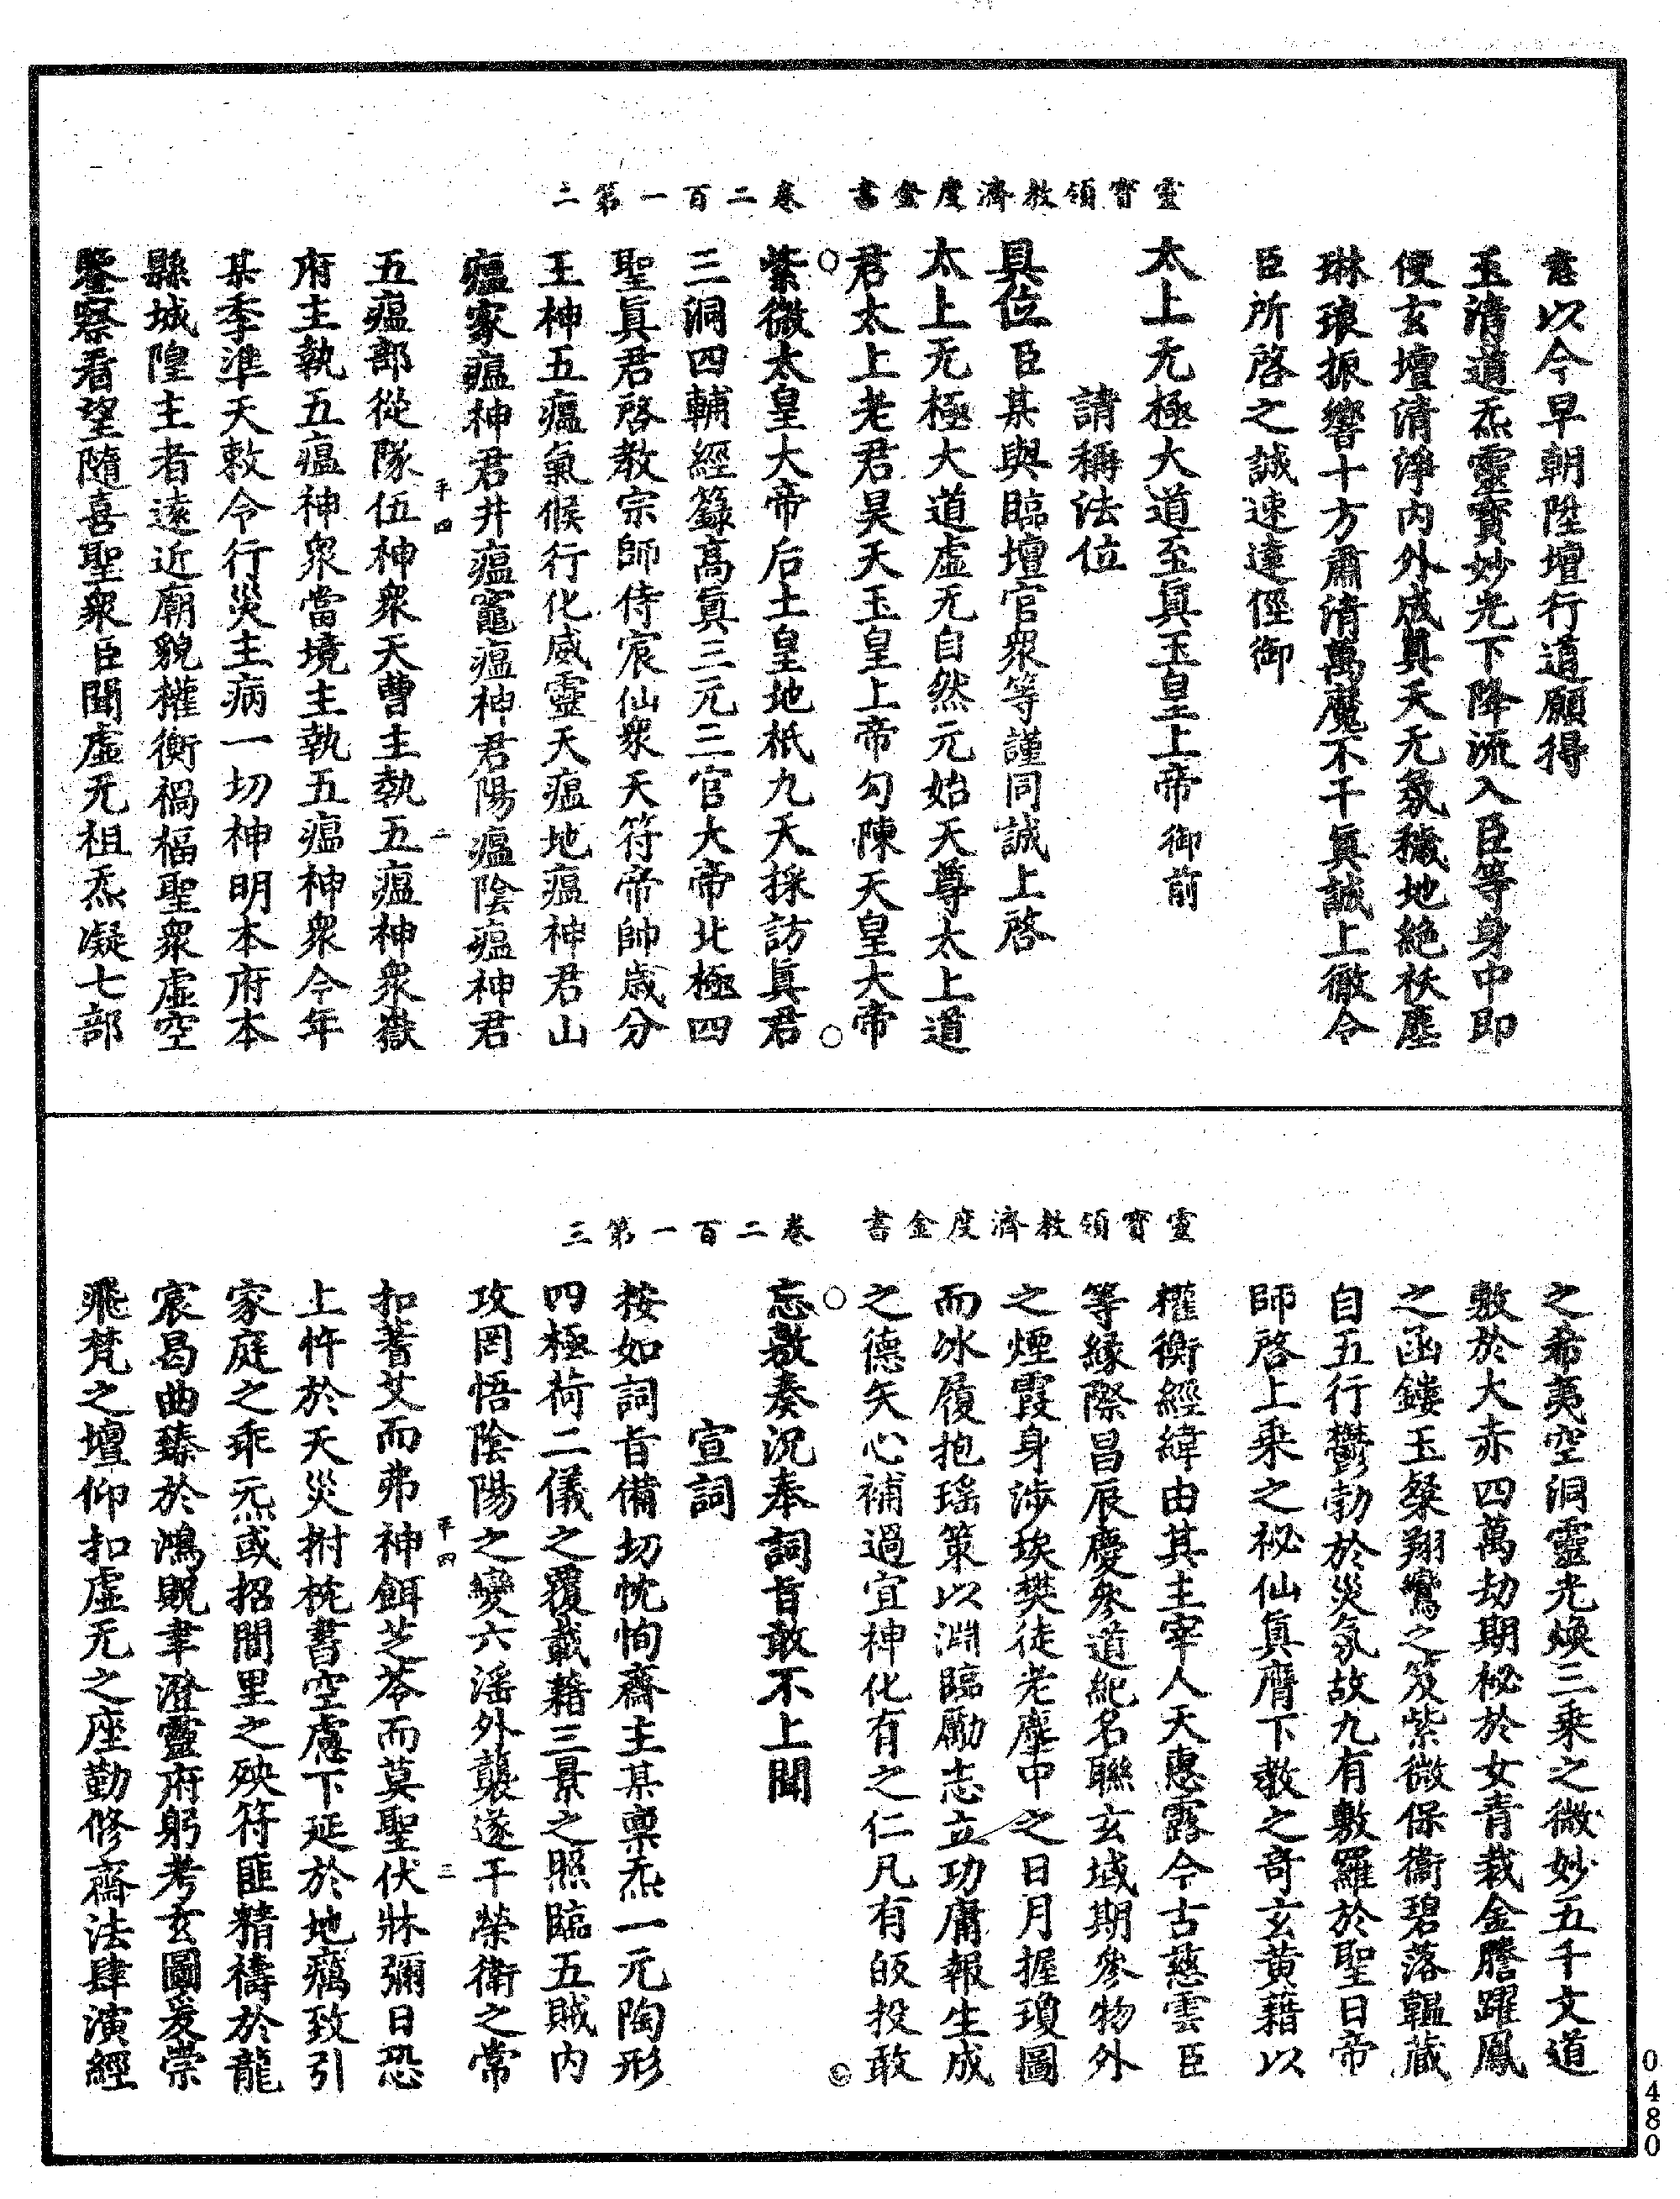 靈寶領教濟度金書　卷二百一第二
意以今早朝陞壇行道願得
玉清道炁靈寶妙光下降流入臣等身中即
使玄壇清淨内外成真天无氛穢地絶祅塵
琳琅振響十方肅清萬魔不干真誠上徹令
臣所啓之誠速達徑御
太上无極大道至真玉皇上帝御前
請稱法位
具位臣某與臨壇官衆等謹同誠上啓
太上无極大道虚无自然元始天尊太上道
君太上老君昊天玉皇上帝勾陳天皇大帝
紫微太皇大帝后土皇地祇九天採訪真君
三洞四輔經籙高真三元三官大帝北極四
聖真君啓教宗師侍宸仙衆天符帝帥歲分
王神五瘟氣候行化威靈天瘟地瘟神君山
瘟家瘟神君井瘟竈瘟神君陽瘟陰瘟神君
平四　二
五瘟部從隊伍神衆天曹主執五瘟神衆嶽
府主執五瘟神衆當境主執五瘟神衆今年
某季準天敕令行災主病一切神明本府本
縣城隍主者遠近廟貌權衡禍福聖衆虚空
鑒察看望隨喜聖衆臣聞虚无祖炁凝七部
靈寶領教濟度金書　卷二百一第三
之希夷空洞靈光煥三乘之微妙五千文道
敷於大赤四萬劫期祕於女青裁金謄躍鳳
之函鏤玉粲翔鸞之笈紫微保衞碧落韞藏
自五行鬱勃於災氛故九有敷羅於聖日帝
師啓上乘之祕仙真膺下教之奇玄黄藉以
權衡經緯由其主宰人天惠露今古慈雲臣
等緣際昌辰慶參道紀名聯玄域期參物外
之煙霞身涉埃樊徒老塵中之日月握瓊圖
而冰履抱瑶策以淵臨勵志立功庸報生成
之德矢心補過宜神化有之仁凡有皈投敢
忘敷奏況奉詞旨敢不上聞
宣詞
按如詞旨備切忱恂齋主某禀炁一元陶形
四極荷二儀之覆載藉三景之照臨五賊内
攻罔悟陰陽之變六滛外襲遂干榮衛之常
平四　三
扣蓍艾而弗神餌芝苓而莫聖伏牀彌日恐
上忤於天災拊枕書空慮下延於地癘致引
家庭之乖炁或招閭里之殃符匪精禱於龍
宸曷曲臻於鴻貺聿澄靈府躬考玄圖爰崇
飛梵之壇仰扣虚无之座勤修齋法肆演經
0480